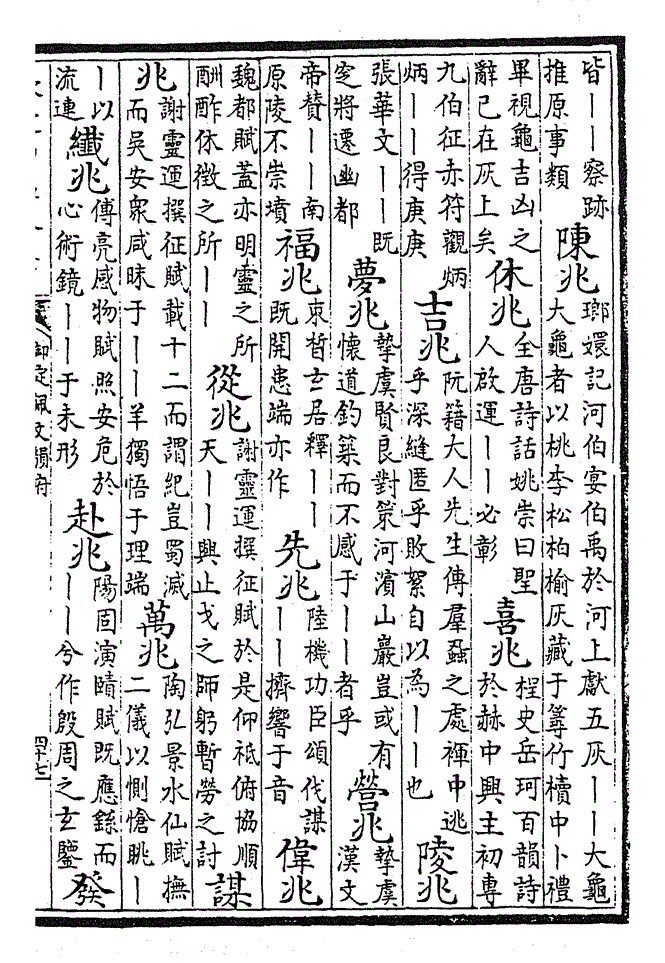 皆丨丨察跡
推原事類
陳兆
瑯嬛記河伯宴伯禹於河上獻五灰丨丨大龜
大龜者以桃李松柏榆灰藏于篿竹櫝中卜禮
畢視龜吉凶之
辭已在灰上矣
休兆
全唐詩話姚崇曰聖
人啟運丨丨必彰
喜兆
桯史岳珂百韻詩
於赫中興主初專
九伯征赤符觀炳
炳丨丨得庚庚
吉兆
阮籍大人先生傳羣蝨之處褌中逃
乎深縫匿乎敗絮自以為丨丨也
陵兆
張華文丨丨既
窆將遷幽都
夢兆
摯虞賢良對策河濱山巖豈或有
懷道釣築而不感于丨丨者乎
營兆
摯虞
漢文
帝贊丨丨南
原陵不崇墳
福兆
束晳玄居釋丨丨
既開患端亦作
先兆
陸機功臣頌伐謀
丨丨擠響于音
偉兆
魏都賦蓋亦明靈之所
酬酢休徵之所丨丨
從兆
謝靈運撰征賦於是仰祗俯協順
天丨丨興止戈之師躬暫勞之討
謀
兆
謝靈運撰征賦載十二而謂紀豈蜀滅
而吳安衆咸昧于丨丨羊獨悟于理端
萬兆
陶弘景水仙賦撫
二儀以惻愴眺丨
丨以
流連
纖兆
傅亮感物賦照安危於
心術鏡丨丨于未形
赴兆
陽固演賾賦既應繇而
丨丨兮作殷周之玄鑒
發
御定佩文韻府
四十七